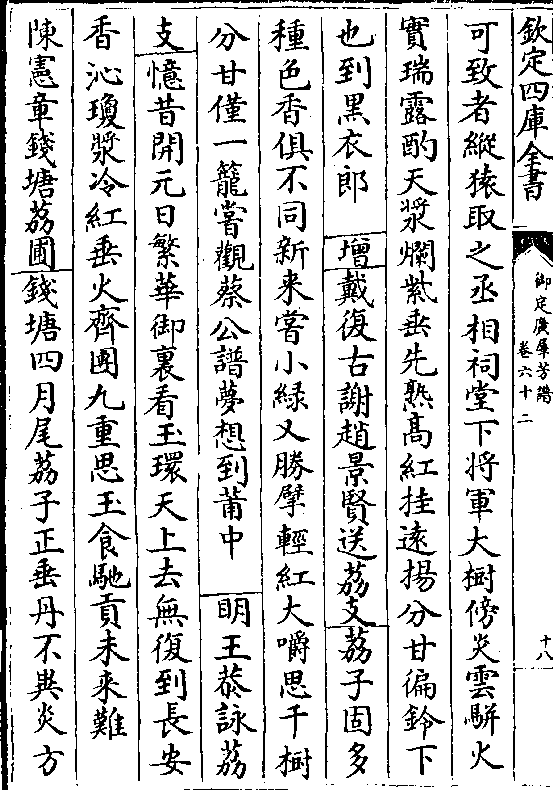 欽定四庫全書
御定廣羣芳譜
卷六十二
十八
可致者縱猿取之丞相祠堂下將軍大樹傍炎雲駢火
實瑞露酌天漿爛紫垂先熟高紅挂遠揚分甘徧鈴下
也到黑衣郎 增戴復古謝趙景賢送荔支荔子固多
種色香俱不同新來嘗小綠又勝擘輕紅大嚼思千樹
分甘僅一籠嘗觀蔡公譜夢想到莆中 明王恭詠荔
支憶昔開元日繁華御裏看玉環天上去無復到長安
香沁瓊漿冷紅垂火齊團九重思玉食馳貢未來難
陳憲章錢塘荔圃錢塘四月尾荔子正垂丹不異炎方